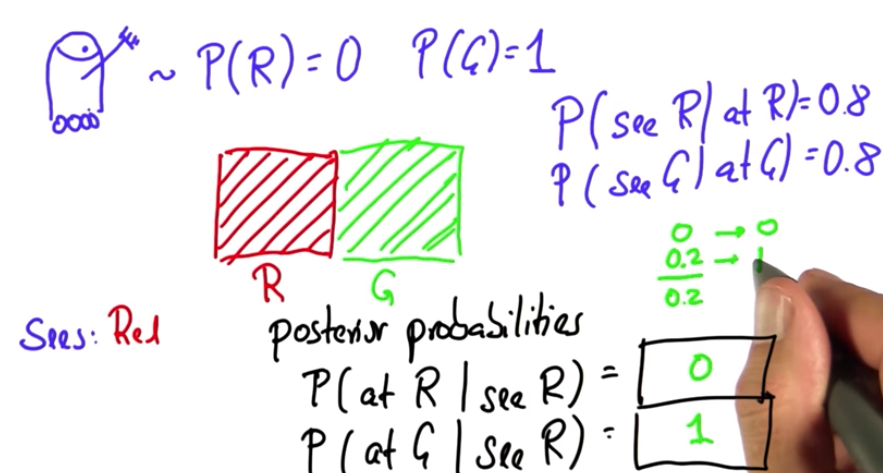 ~ P(R)=0 P(G)=1
P(see R|at R)=0.8
P(see G|at G)=0.8
R G
0 → 0
0.2 → 1
0.2
Sees: Red
posterior probabilities
P(at R|see R) = 0
P(at G|see R) = 1